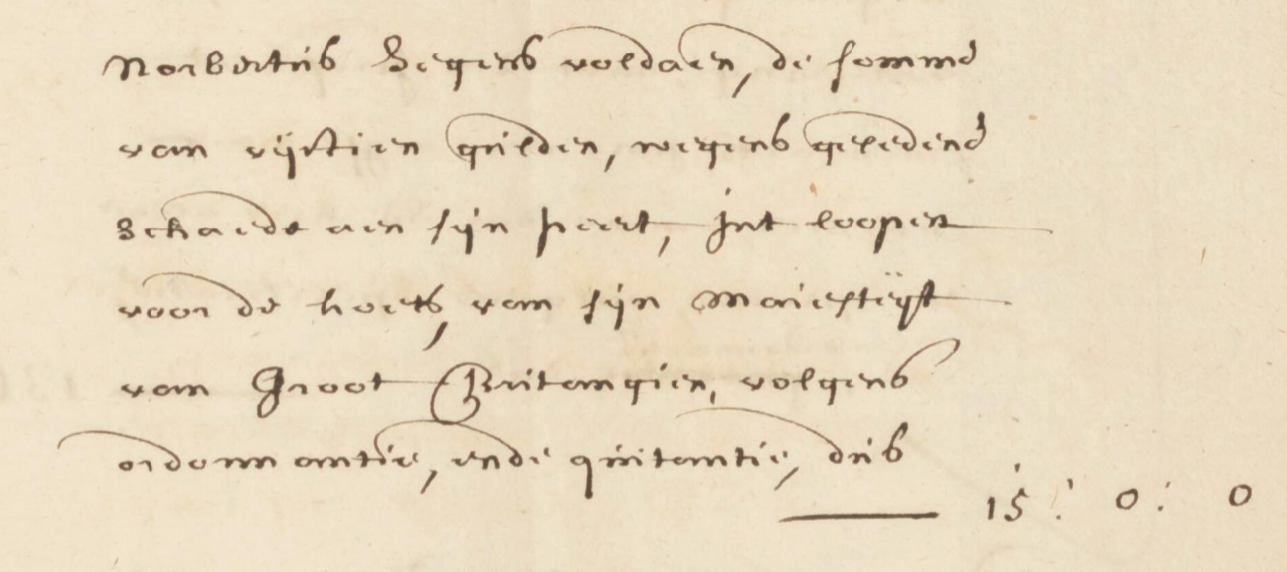 Norbertus Segers voldaen, de somme
van vijftien gulden, wegens geledene
Schaede aen sijn peert, Int loopen
voor de koets, van sijn Maiesteijt
van Groot Britangien, volgens
ordonnantie, ende quitantie, dus
15: 0: 0